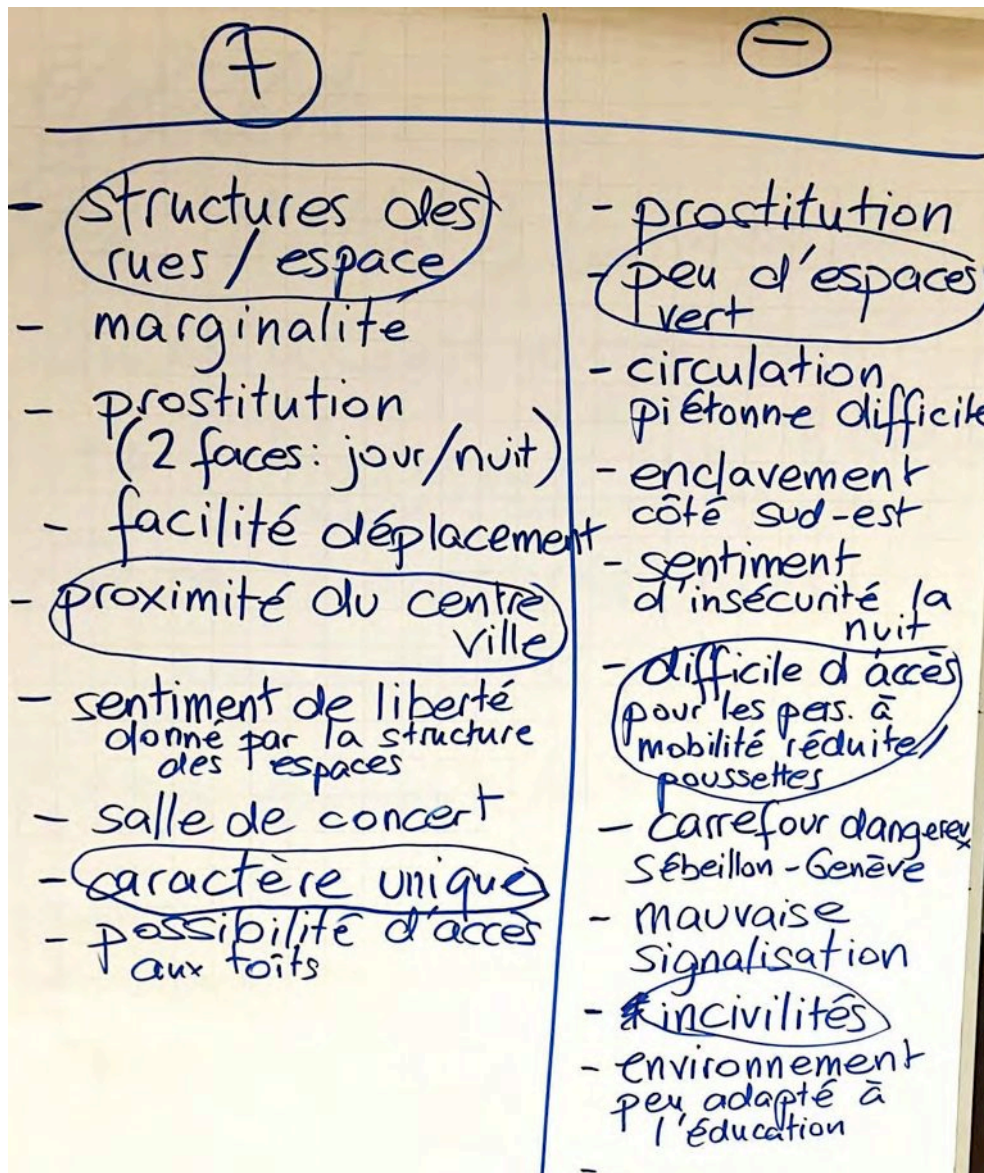 +
- structures des
rues / espace
- marginalité
- prostitution
(2 faces: jour/nuit)
- facilité déplacement
- proximité du centre
ville
- sentiment de liberté
donné par la structure
des espaces
- salle de concert
- caractère unique
- possibilité d'accès
aux toîts
-
- prostitution
- peu d'espaces
vert
- circulation
piétonne difficile
- enclavement
côté sud-est
- sentiment
d'insécurité la
nuit
- difficile d'accès
pour les pers. à
mobilité réduite/
poussettes
- carrefour dangereux
Sébeillon-Genève
- mauvaise
signalisation
- incivilités
- environnement
peu adapté à
l'éducation
-